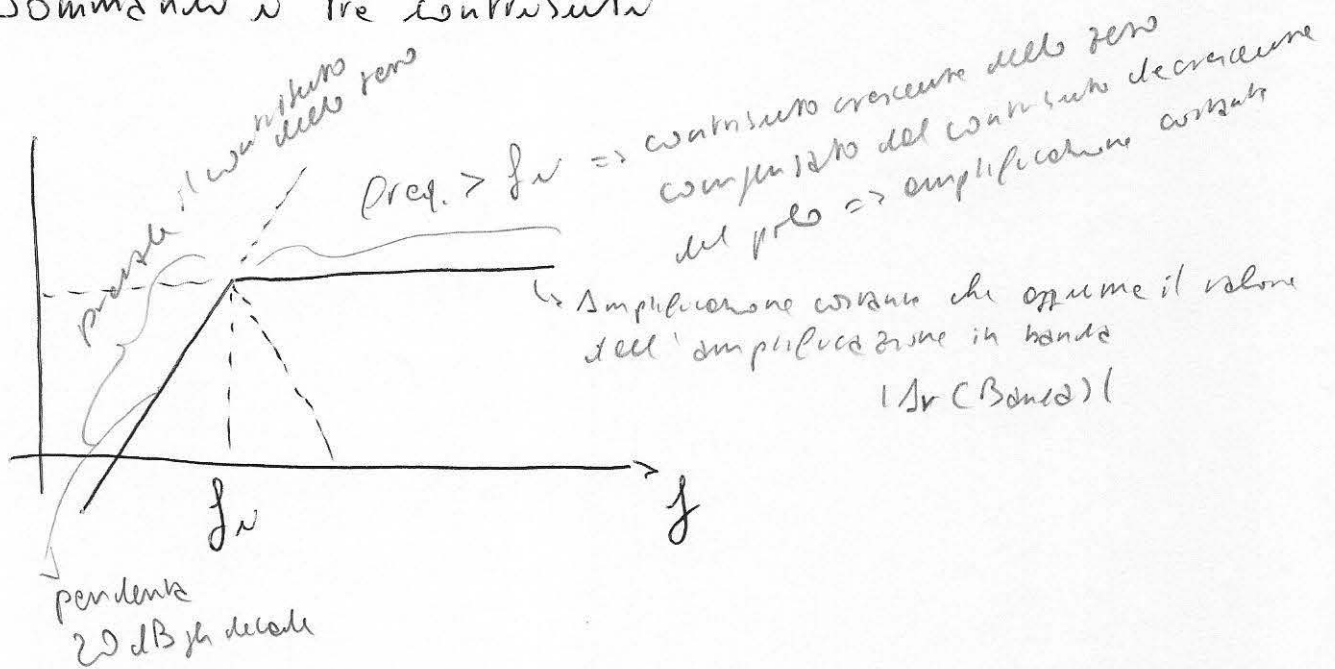 Sommando i tre contributi
prevale il contributo
dello zero
freq. > fi => contributo crescente dello zero
compensato dal contributo decrescente
del polo => amplificazione costante
Amplificazione costante che assume il valore
dell'amplificazione in banda
|Av (Banda)|
fi
f
pendenza
20 dB per decade